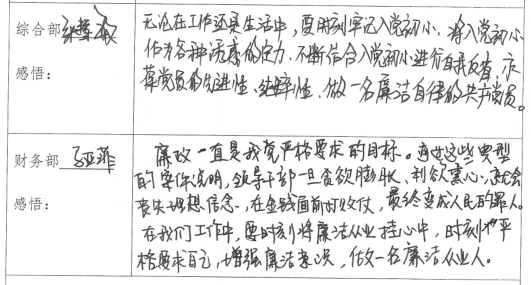 综合部
无论在工作还是生活中，要时刻牢记入党初心，将入党初心
作为各种诱惑的定力，不断结合入党初心进行自我反省，永
葆党员的先进性、纯粹性，做一名廉洁自律的共产党员。
感悟：
财务部 马亚菲
廉政一直是我党严格要求的目标。通过这些典型
的案件说明，领导干部一旦贪欲膨胀、利欲熏心，就会
丧失理想信念，在金钱面前打败仗，最终变成人民的罪人。
感悟：
在我们工作中，要时刻将廉洁从业挂心中，时刻严
格要求自己，增强廉洁意识，做一名廉洁从业人。